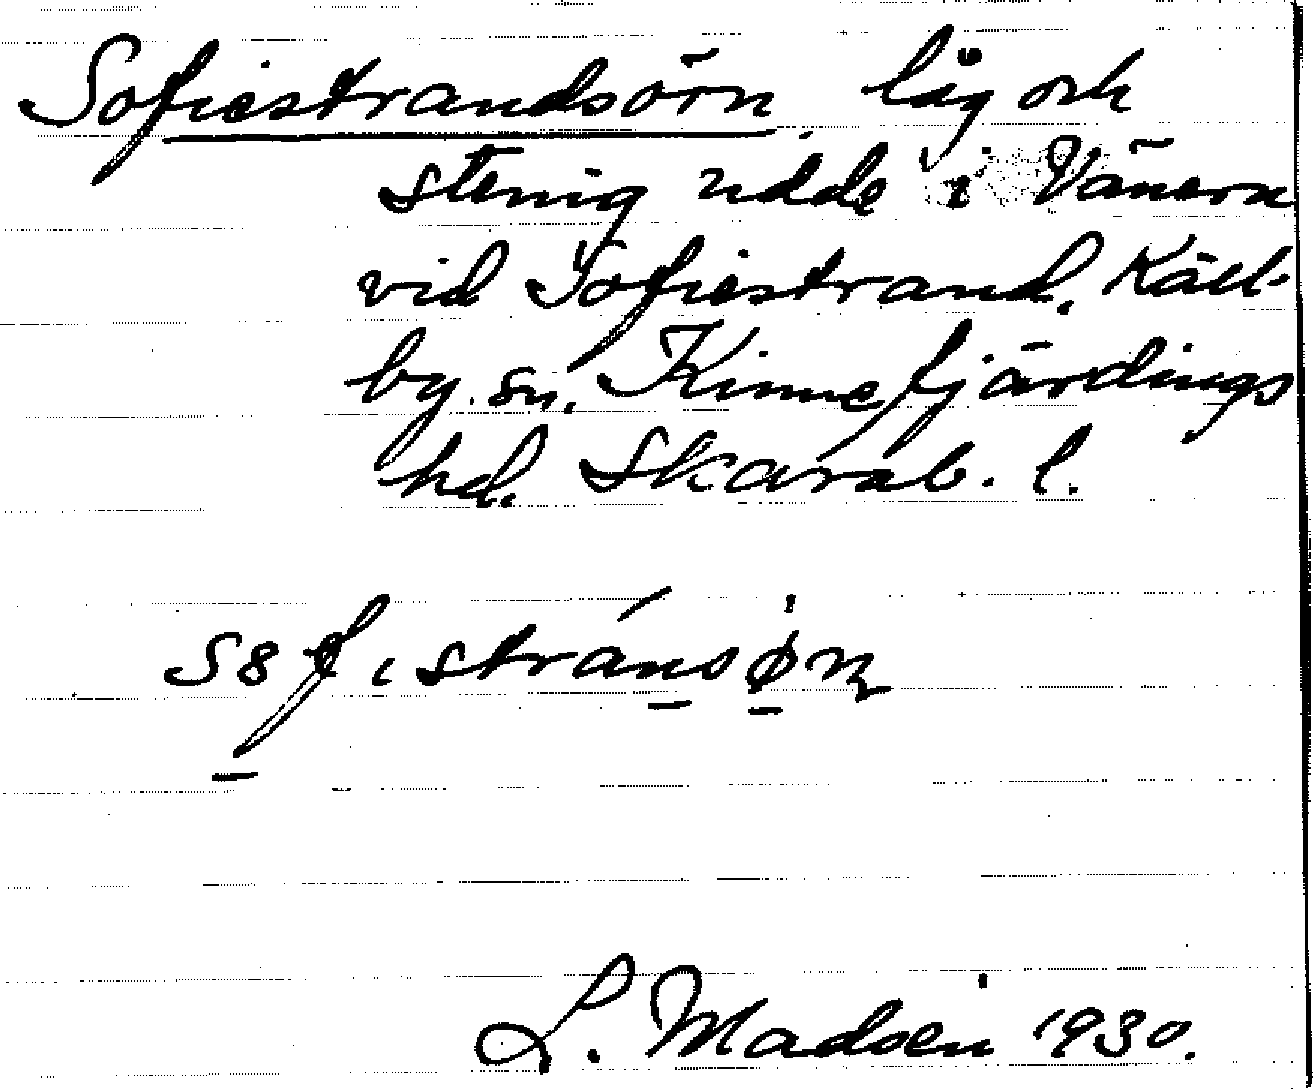 Sofiestrandsörn låg och
stenig udde i Vänern
vid Sofiestrand, Käll-
by sn, Kinnefjärdings
hd. Skarab. l.
L. Madsén 1930.